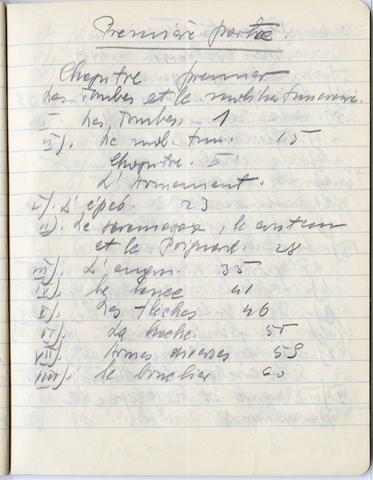 Première partie
Chapitre premier
Les Tombes et le mobilier funéraire.
I. Les Tombes. 1
II). Le mob. fun. 15
Chapitre. II
L'Armement.
I). L'épée. 23
II). Le scramasax, le couteau
et le Poignard. 28
III). L'angon. 35
IV). La lance 41
V). Les Flèches 46
VI). La hache. 55
VII). Armes diverses 59
VIII). Le bouclier 60